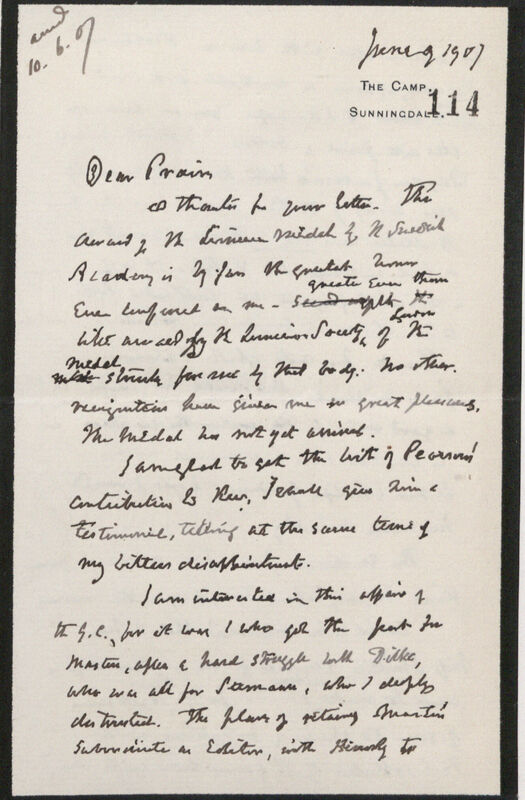 and
10. 6. 07
June 9 1907
THE CAMP,
SUNNINGDALE.
114
Dear Prain
∞ thanks for your letter. The
award of the Linnean Medal by the Swedish
Academy is by far the greatest honor
Ever conferred on me – greater Even than
the
like award by the Linnean Society of London of the
Medal struck for me by that body. No other
recognition have given me so great pleasure.
The Medal has not yet arrived.
I am glad to get the list of Pearson's
contribution to Kew, I shall give him a
testimonial, telling at the same time of
my bitter disappointment.
I am interested in this affair of
the G.C., for it was I who got the post for
Masters, after a hard struggle with Dilke,
who was all for Seemann, who I deeply
distrusted. The plan of retaining Masters'
Subordinate as Editor, with Hemsley to